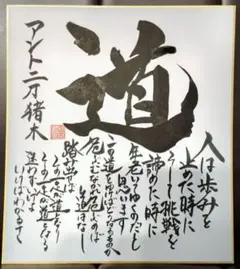 道
人は歩みを
止めた時に
そして挑戦を
諦めた時に
年老いてゆくのだと
思います
この道をゆけばどうなるものか
危ぶむなかれ危ぶめば
道はなし
踏み出せば
その一足が道となる
迷わずゆけよ
ゆけばわかるさ
アントニオ猪木